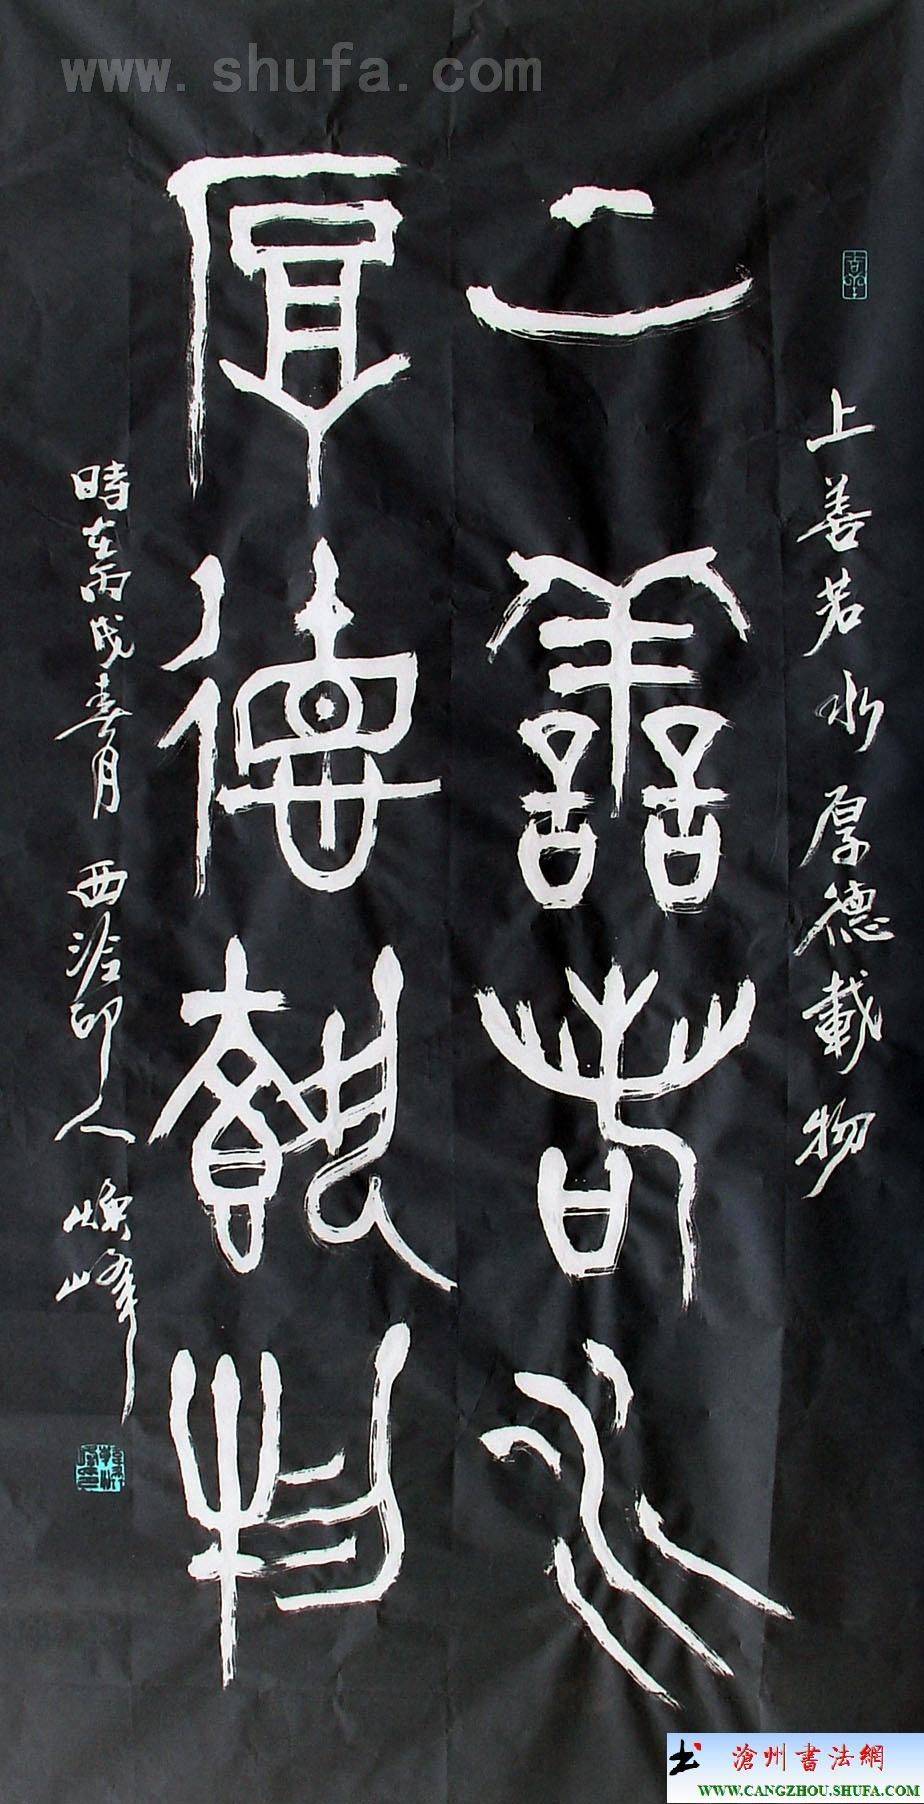 www.shufa.com
上善若水
厚德載物
上善若水厚德載物
時在丙戌春月西滄印人煥峰
滄州書法網
WWW.CANGZHOU.SHUFA.COM